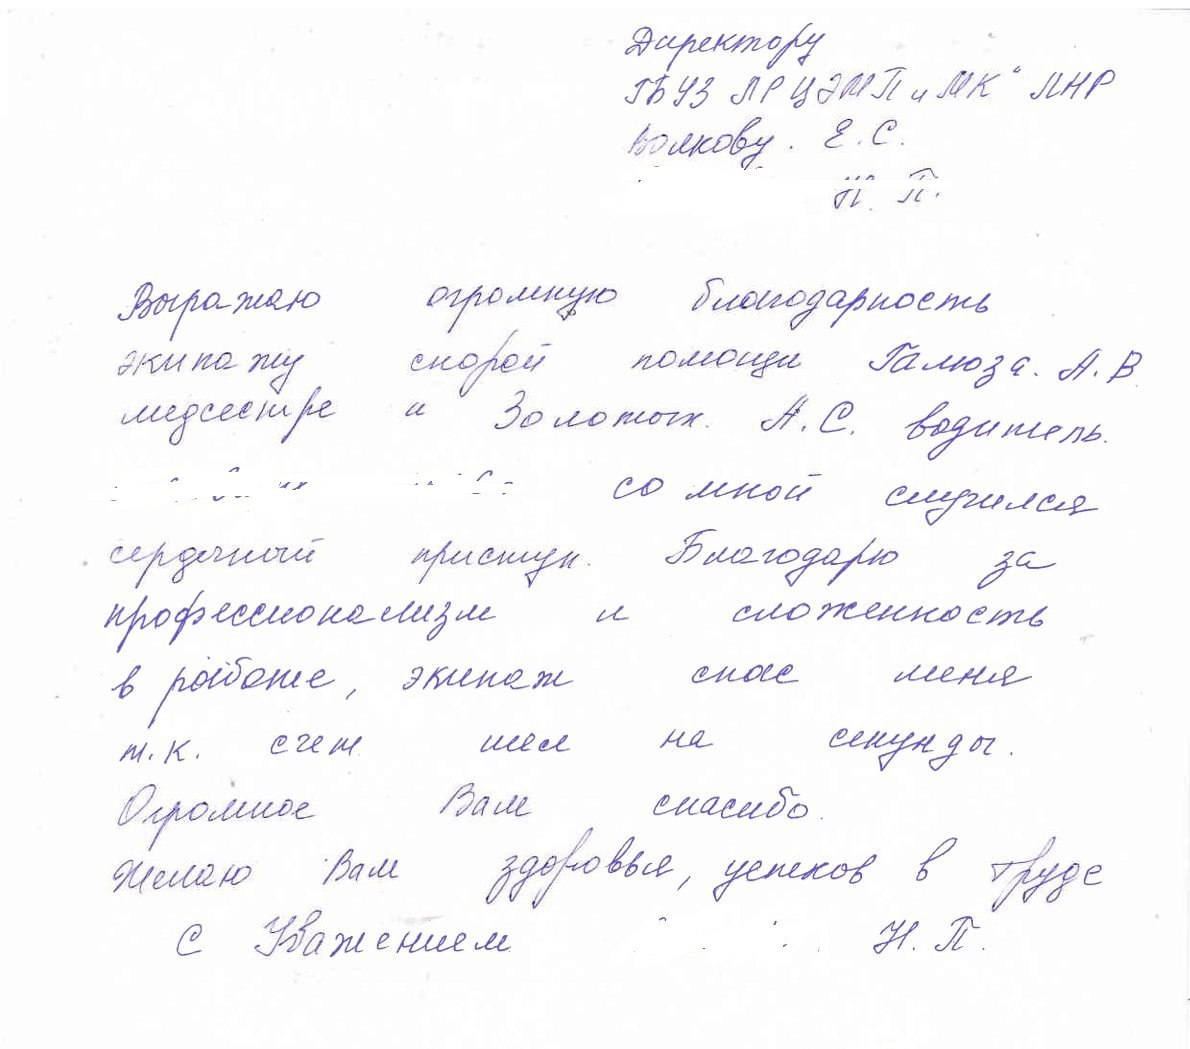 Директору
ГБУЗ ЛРЦЭМП и МК" ЛНР
Волкову. Е. С.
Н. П.
Выражаю огромную благодарность
экипажу скорой помощи Галюза. А. В
медсестре и Золотых. А. С. водитель.
со мной случился
сердечный приступ. Благодарю за
профессионализм и сложенность
в работе, экипаж спас меня
т. к. счет шел на секунды.
Огромное Вам спасибо.
Желаю Вам здоровья, успехов в труде
С Уважением Н. П.